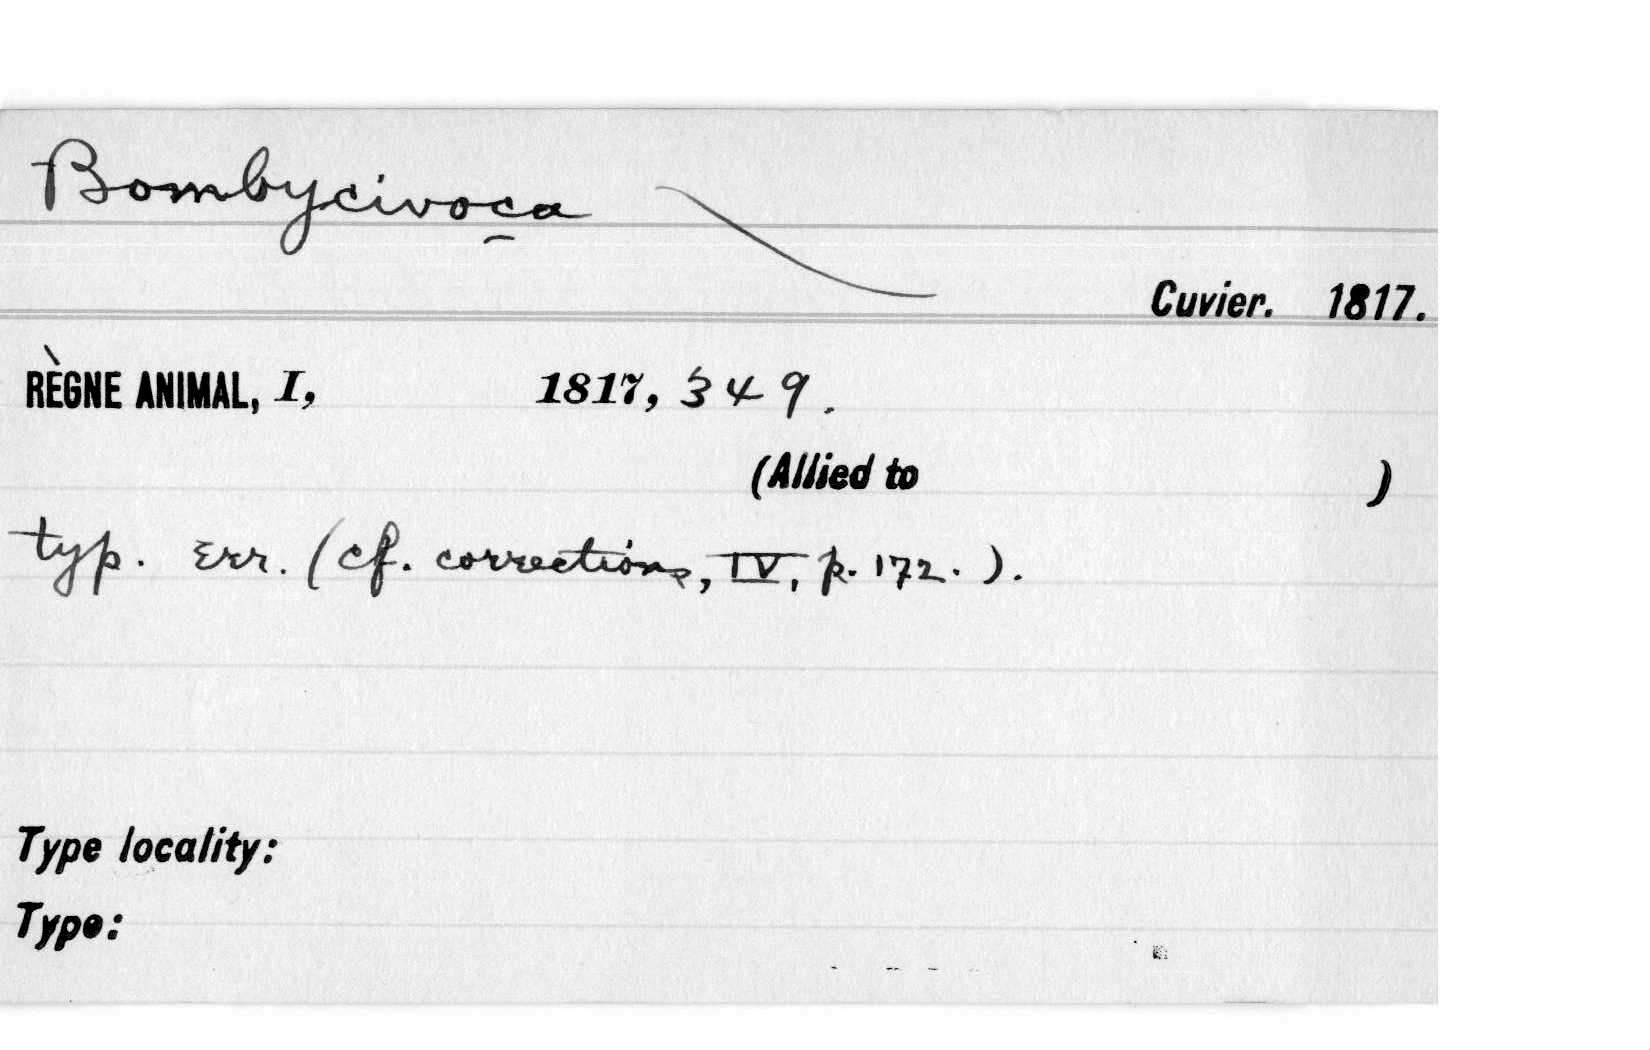 Bombycivoca
Cuvier. 1817.
RÈGNE ANIMAL, I, 1817, 349.
(Allied to )
typ. Err. (cf. corrections, IV, p. 172.).
Type locality:
Type: